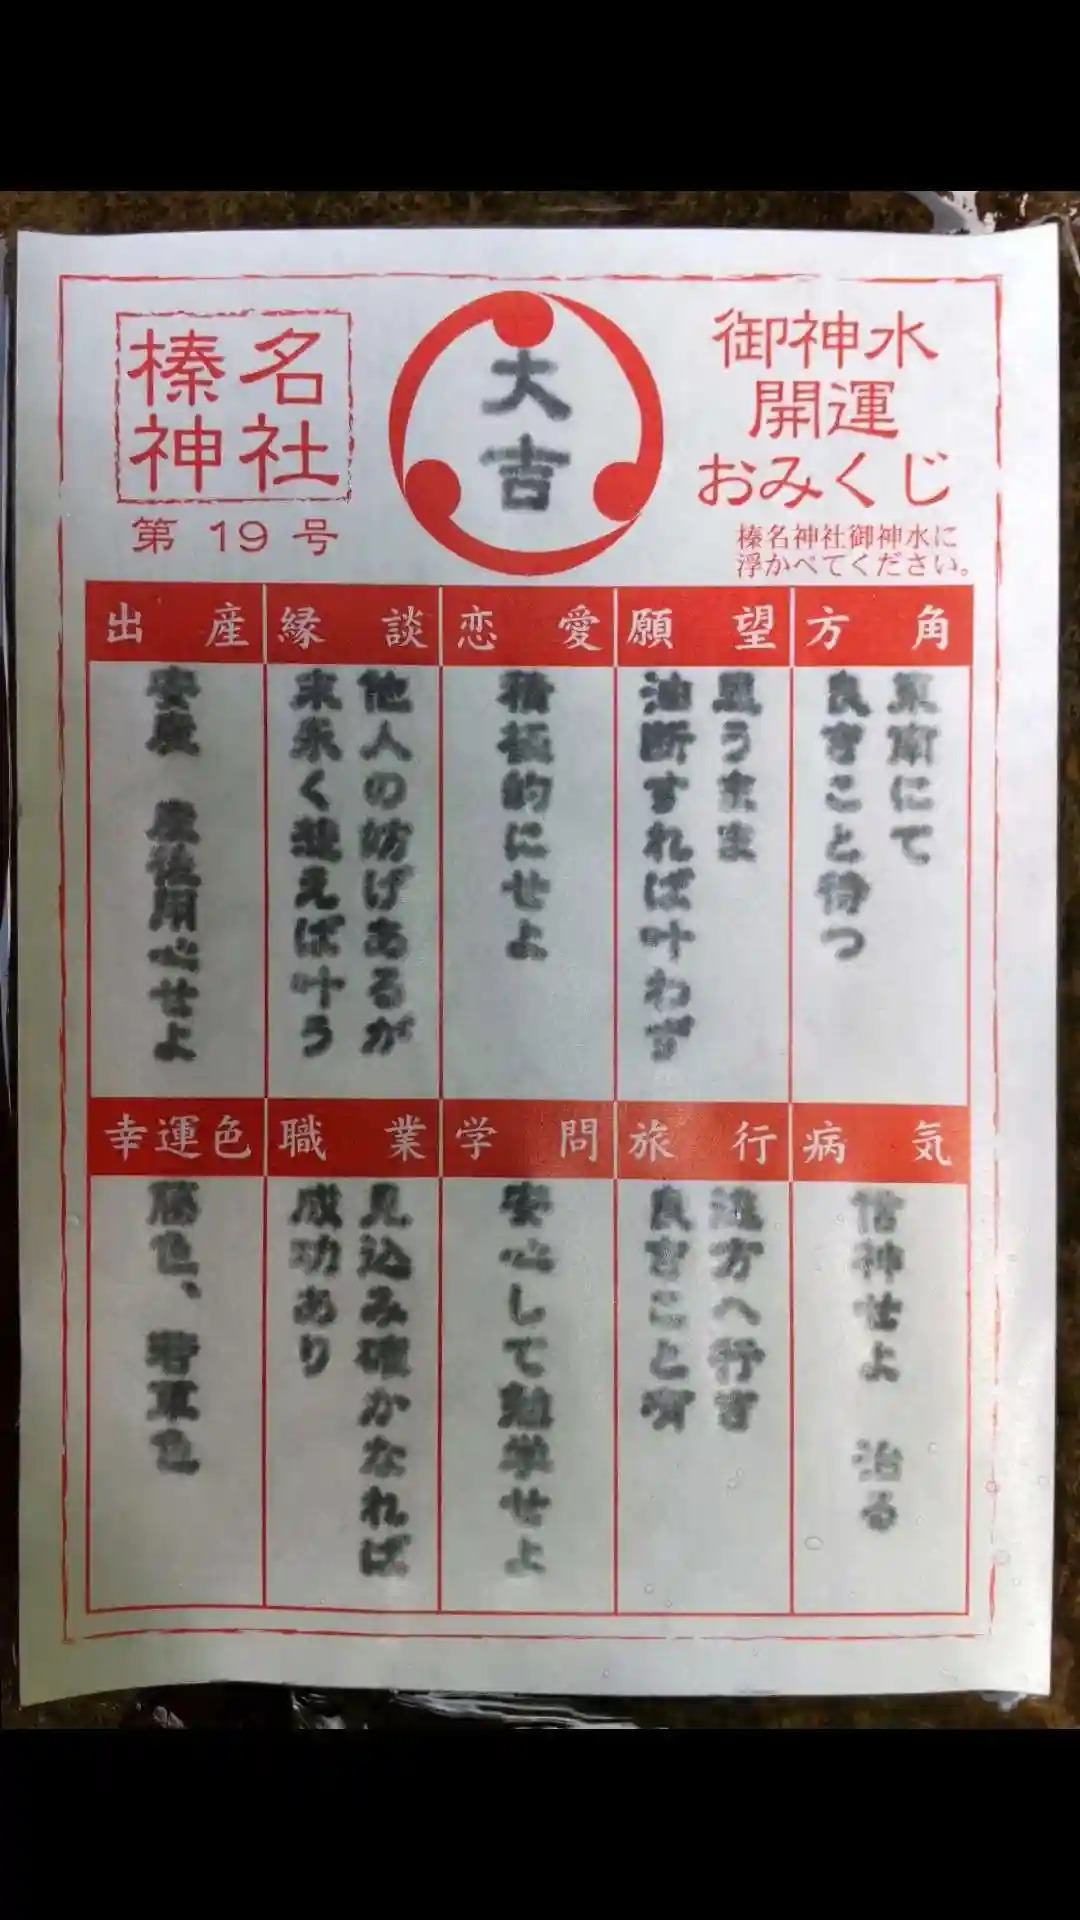 御神水
開運
おみくじ
榛名神社御神水に
浮かべてください。
大吉
榛名
神社
第19号
方角
東南にて
良きこと待つ
願望
思うまま
油断すれば叶わず
恋愛
積極的にせよ
縁談
他人の妨げあるが
末永く想えば叶う
出産
安産 産後用心せよ
病気
信神せよ 治る
旅行
遠方へ行き
良きこと有
学問
安心して勉学せよ
職業
見込み確かなれば
成功あり
幸運色
藤色、 若草色